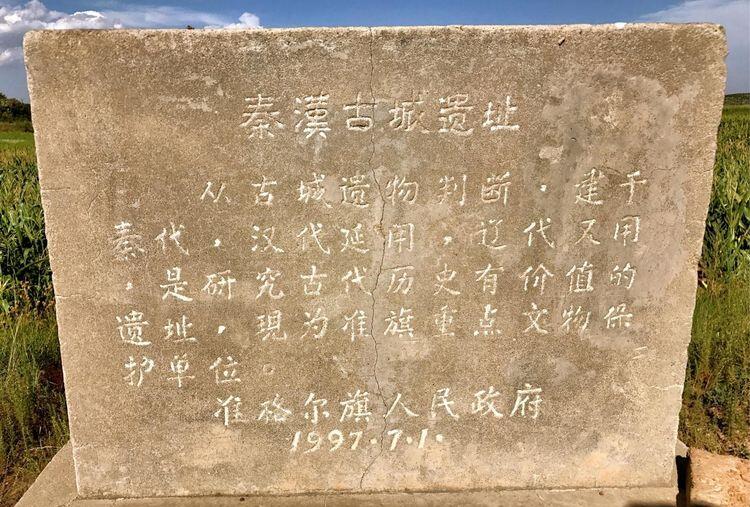 秦漢古城遗址
从古城遗物判断，建于
秦代，汉代延用，辽代又用
，是研究古代历史有价值的
遗址，现为准旗重点文物保
护单位。
准格尔旗人民政府
1997.7.1.